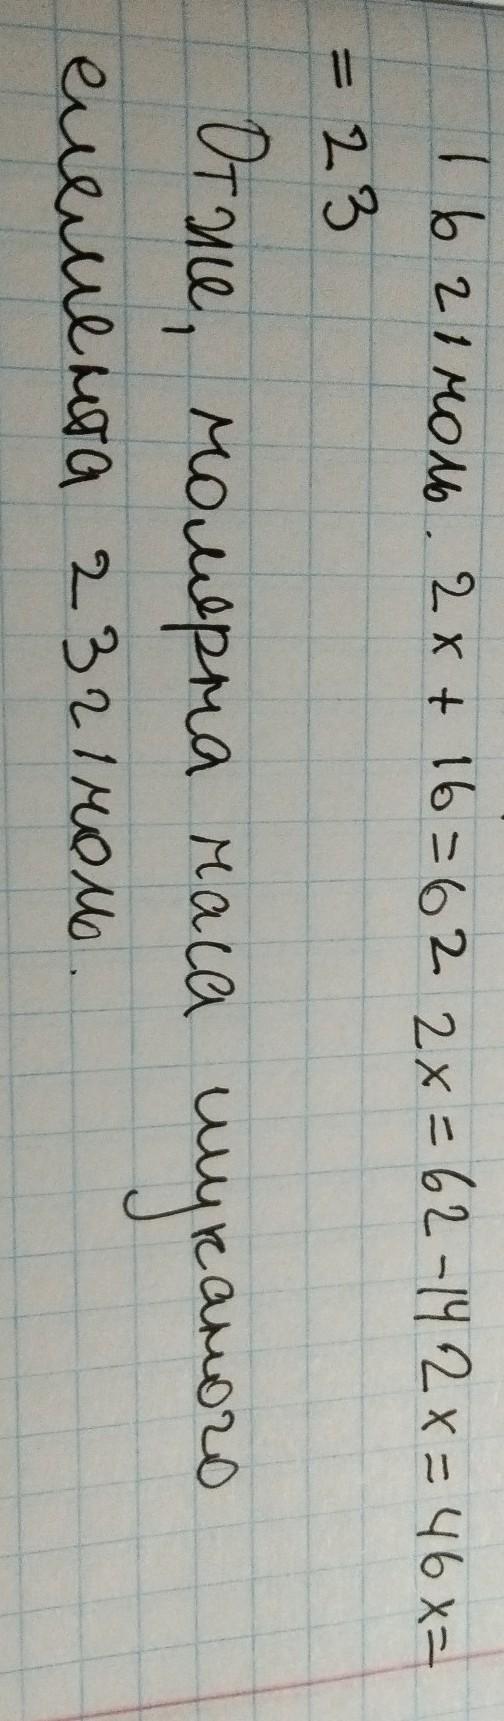 16 г/моль. 2x + 16 = 62 2x = 62 - 14 2x = 46 x =
= 23
Отже, молярна маса шуканого
елемента 23 г/моль.